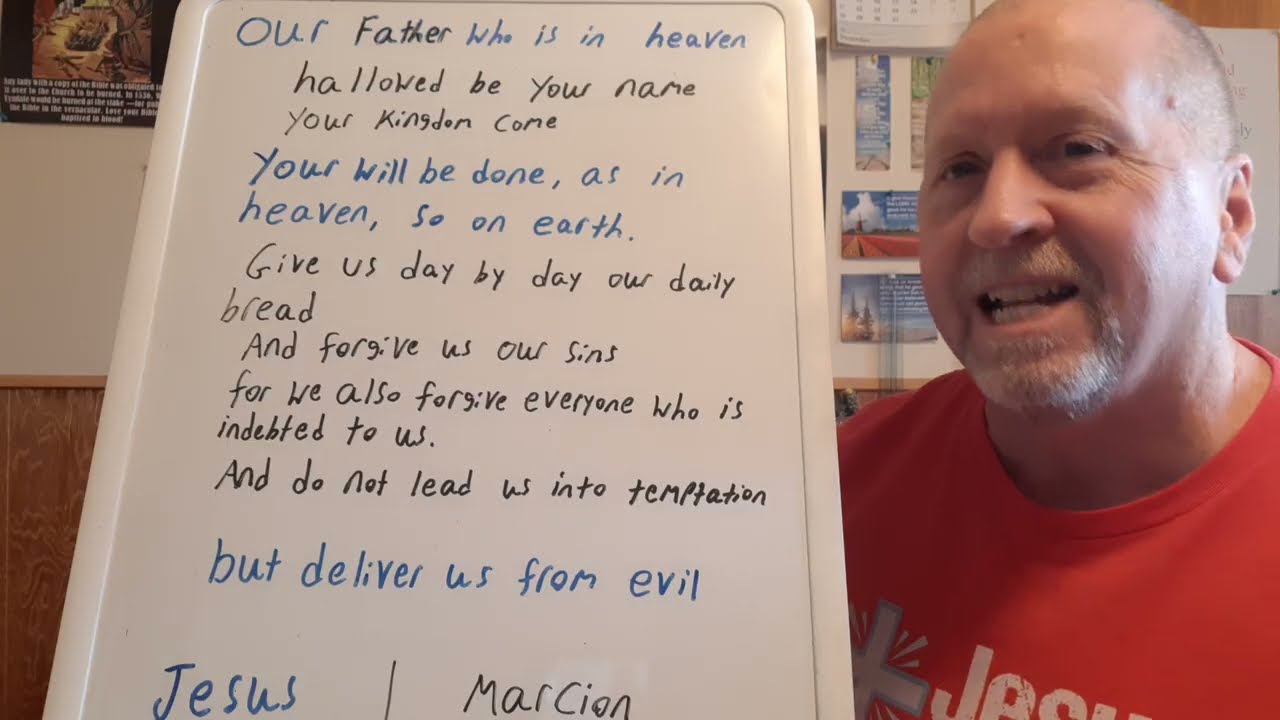 Our Father who is in heaven
hallowed be Your name
Your Kingdom come
Your will be done, as in
heaven, so on earth.
Give us day by day our daily
bread
And forgive us our sins
for we also forgive everyone who is
indebted to us.
And do not lead us into temptation
but deliver us from evil
Jesus | Marcion
Any lady with a copy of the Bible was
it over to the Church to be burned. In 1536,
Tyndale would be burned at the stake—for
the Bible in the vernacular. Love your Bible
baptized in blood!
Jesu